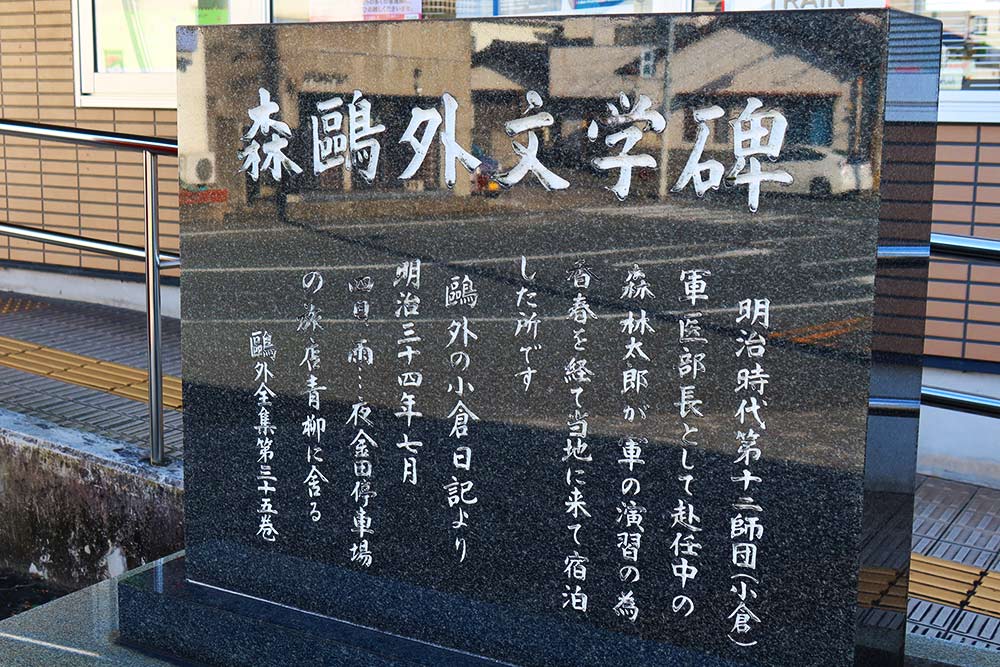 TRAIN
森鷗外文学碑
明治時代第十二師団(小倉)
軍医部長として赴任中の
森林太郎が軍の演習の為
香春を経て当地に来て宿泊
した所です
鷗外の小倉日記より
明治三十四年七月
四日、雨…夜金田停車場
の旅店青柳に舎る
鷗外全集第三十五巻